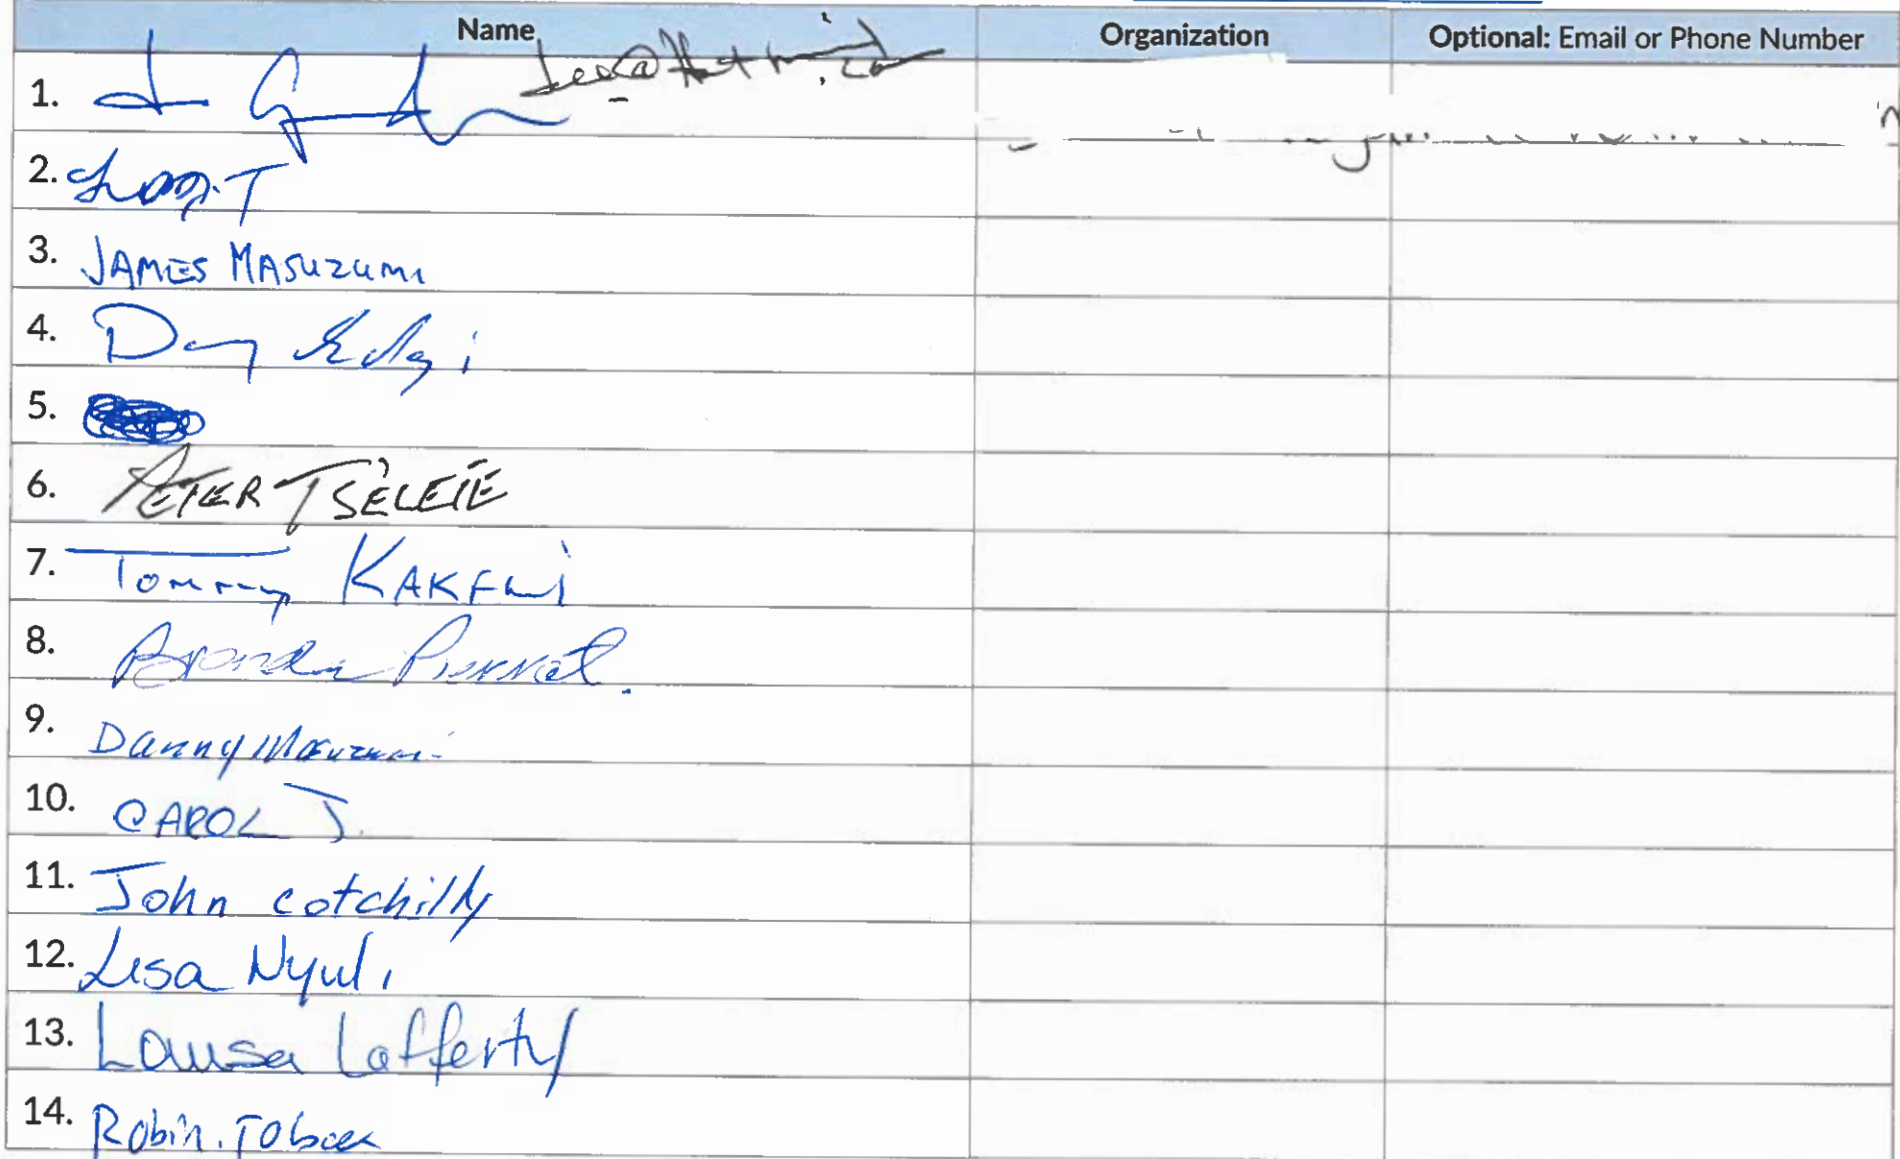 Name Organization Optional: Email or Phone Number
1.
2. T
3. JAMES MASUZUMI
4.
5.
6. PETER TSELEIE
7. Tommy KAKFWI
8. Brenda Pierrot.
9. Danny Masuzumi
10. CAROL J.
11. John cotchilly
12. Lisa Nyuli
13. Louisa Lafferty
14. Robin.